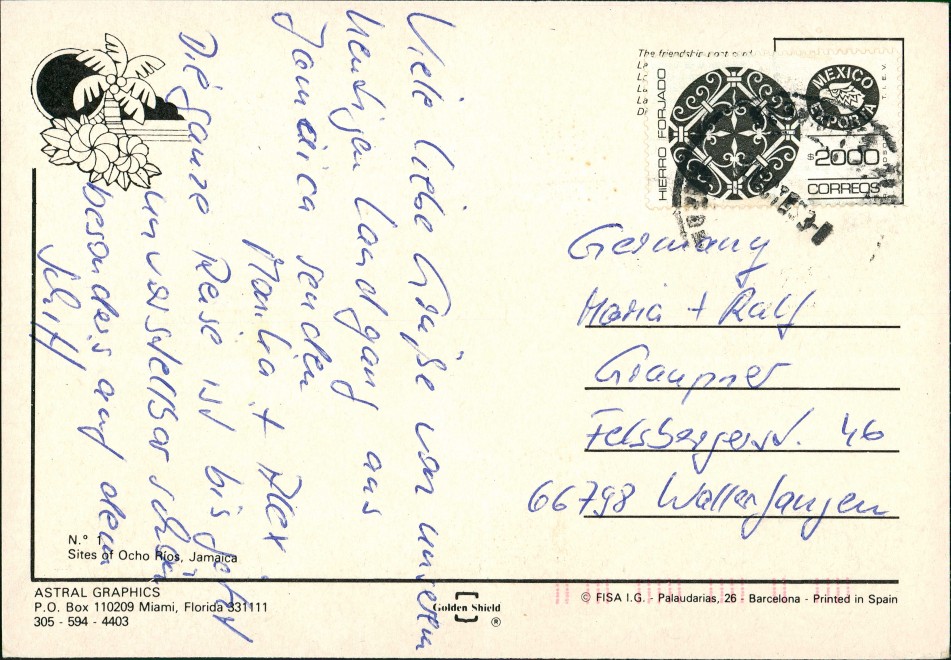 Viele liebe Grüße von unserem
heutigen Landgang aus
Jamaica senden
Marika + Alex
Die ganze Reise ist bis jetzt
unvorstellbar schön
besonders auf dem
Schiff
The friendship post card
HIERRO FORJADO
MEXICO
EXPORTA
$2000
CORREOS
T.I.E.V.
Germany
Maria + Ralf
Graupner
Felsbergerst. 46
66798 Wallerfangen
N.° 1
Sites of Ocho Ríos, Jamaica
ASTRAL GRAPHICS
P.O. Box 110209 Miami, Florida 331111
305 - 594 - 4403
Golden Shield
®
© FISA I.G. - Palaudarias, 26 - Barcelona - Printed in Spain